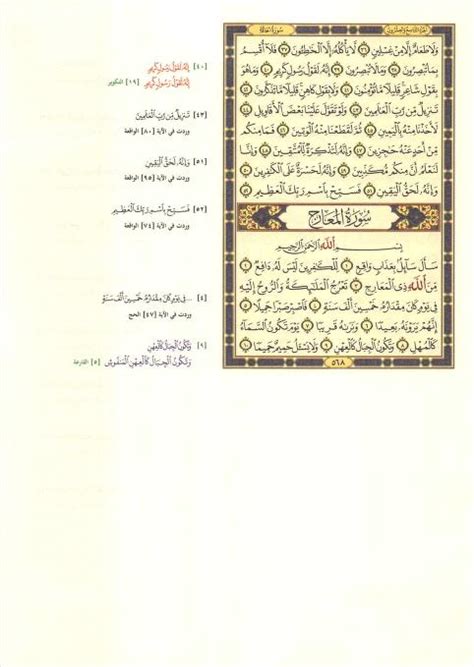 الجزء التاسع والعشرون
سورة الحاقة
وَلَا طَعَامٌ إِلَّا مِنْ غِسْلِينٍ ٣٦ لَّا يَأْكُلُهُ إِلَّا الْخَاطِئُونَ ٣٧ فَلَا أُقْسِمُ
بِمَا تُبْصِرُونَ ٣٨ وَمَا لَا تُبْصِرُونَ ٣٩ إِنَّهُ لَقَوْلُ رَسُولٍ كَرِيمٍ ٤٠ وَمَا هُوَ
بِقَوْلِ شَاعِرٍ قَلِيلًا مَّا تُؤْمِنُونَ ٤١ وَلَا بِقَوْلِ كَاهِنٍ قَلِيلًا مَّا تَذَكَّرُونَ ٤٢
تَنزِيلٌ مِّن رَّبِّ الْعَالَمِينَ ٤٣ وَلَوْ تَقَوَّلَ عَلَيْنَا بَعْضَ الْأَقَاوِيلِ ٤٤
لَأَخَذْنَا مِنْهُ بِالْيَمِينِ ٤٥ ثُمَّ لَقَطَعْنَا مِنْهُ الْوَتِينَ ٤٦ فَمَا مِنكُم
مِّنْ أَحَدٍ عَنْهُ حَاجِزِينَ ٤٧ وَإِنَّهُ لَتَذْكِرَةٌ لِّلْمُتَّقِينَ ٤٨ وَإِنَّا
لَنَعْلَمُ أَنَّ مِنكُم مُّكَذِّبِينَ ٤٩ وَإِنَّهُ لَحَسْرَةٌ عَلَى الْكَافِرِينَ ٥٠
وَإِنَّهُ لَحَقُّ الْيَقِينِ ٥١ فَسَبِّحْ بِاسْمِ رَبِّكَ الْعَظِيمِ ٥٢
سُورَةُ المَعَارِجِ
بِسْمِ اللَّهِ الرَّحْمَٰنِ الرَّحِيمِ
سَأَلَ سَائِلٌ بِعَذَابٍ وَاقِعٍ ١ لِّلْكَافِرِينَ لَيْسَ لَهُ دَافِعٌ ٢
مِّنَ اللَّهِ ذِي الْمَعَارِجِ ٣ تَعْرُجُ الْمَلَائِكَةُ وَالرُّوحُ إِلَيْهِ
فِي يَوْمٍ كَانَ مِقْدَارُهُ خَمْسِينَ أَلْفَ سَنَةٍ ٤ فَاصْبِرْ صَبْرًا جَمِيلًا ٥
إِنَّهُمْ يَرَوْنَهُ بَعِيدًا ٦ وَنَرَاهُ قَرِيبًا ٧ يَوْمَ تَكُونُ السَّمَاءُ
كَالْمُهْلِ ٨ وَتَكُونُ الْجِبَالُ كَالْعِهْنِ ٩ وَلَا يَسْأَلُ حَمِيمٌ حَمِيمًا ١٠
٥٦٨
[٤٠] إِنَّهُ لَقَوْلُ رَسُولٍ كَرِيمٍ
إِنَّهُ لَقَوْلُ رَسُولٍ كَرِيمٍ [١٩] التكوير
[٤٣] تَنزِيلٌ مِّن رَّبِّ الْعَالَمِينَ
وردت في الآية [٨٠] الواقعة
[٥١] وَإِنَّهُ لَحَقُّ الْيَقِينِ
وردت في الآية [٩٥] الواقعة
[٥٢] فَسَبِّحْ بِاسْمِ رَبِّكَ الْعَظِيمِ
وردت في الآية [٧٤] الواقعة
[٤] ... فِي يَوْمٍ كَانَ مِقْدَارُهُ خَمْسِينَ أَلْفَ سَنَةٍ
وردت في الآية [٤٧] الحج
[٩] وَتَكُونُ الْجِبَالُ كَالْعِهْنِ
وَتَكُونُ الْجِبَالُ كَالْعِهْنِ الْمَنفُوشِ [٥] القارعة